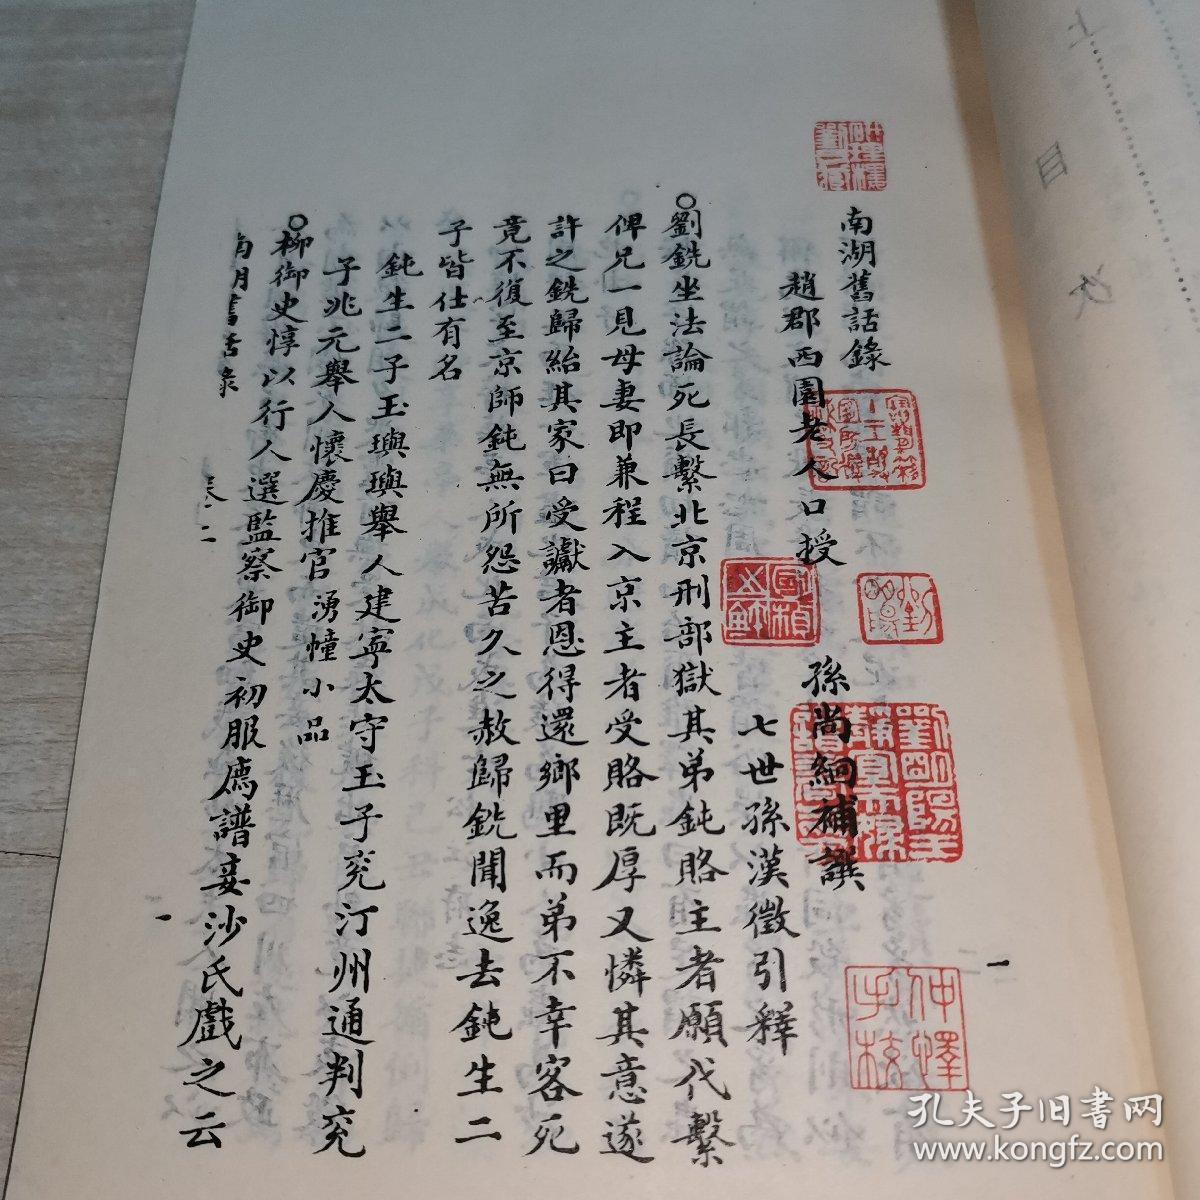 南湖舊話錄
趙郡西園老人口授
孫尚絅補譔
七世孫漢徵引釋
一
○劉銑坐法論死長繫北京刑部獄其弟鈍賂主者願代繫
俾兄一見母妻即兼程入京主者受賂既厚又憐其意遂
許之銑歸紿其家曰受讞者恩得還鄉里而弟不幸客死
竟不復至京師鈍無所怨苦久之赦歸銑聞逸去鈍生二
子皆仕有名
鈍生二子玉璵璵舉人建寧太守玉子兖汀州通判兖
子兆元舉人懷慶推官湧幢小品
○柳御史惇以行人選監察御史初服廌譜妾沙氏戲之云
南湖舊話錄
卷二
一
上
目次
仲懌
手校
孔夫子旧书网
www.kongfz.com